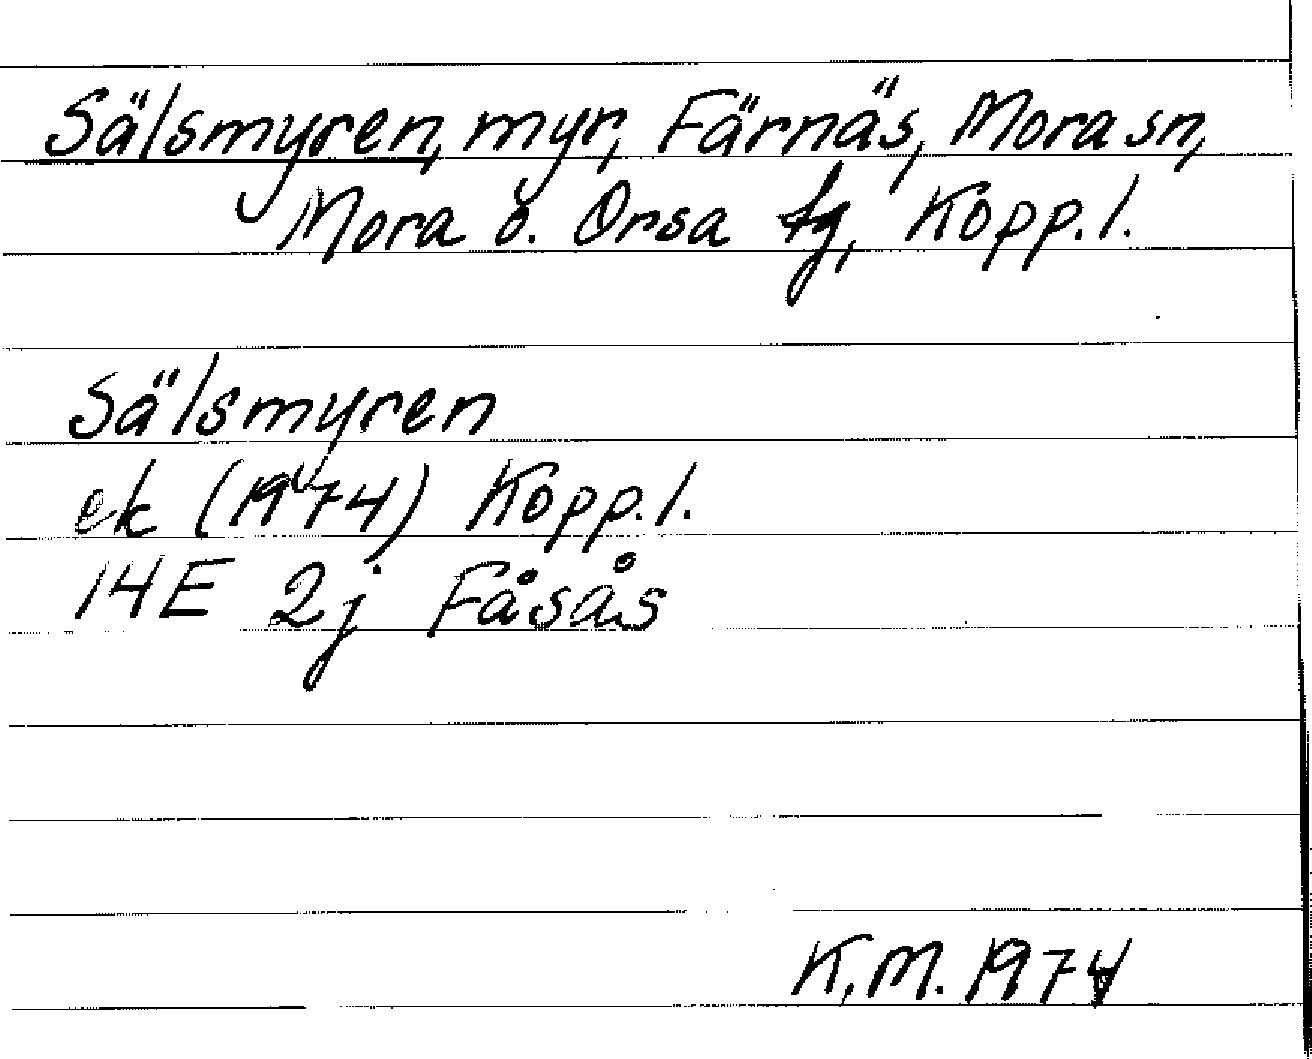 Sälsmyren, myr, Färnäs, Mora sn,
Mora o. Orsa tg, Kopp.l.
Sälsmyren
ek (1974) Kopp.l.
14E 2j Fåsås
K.M. 1974